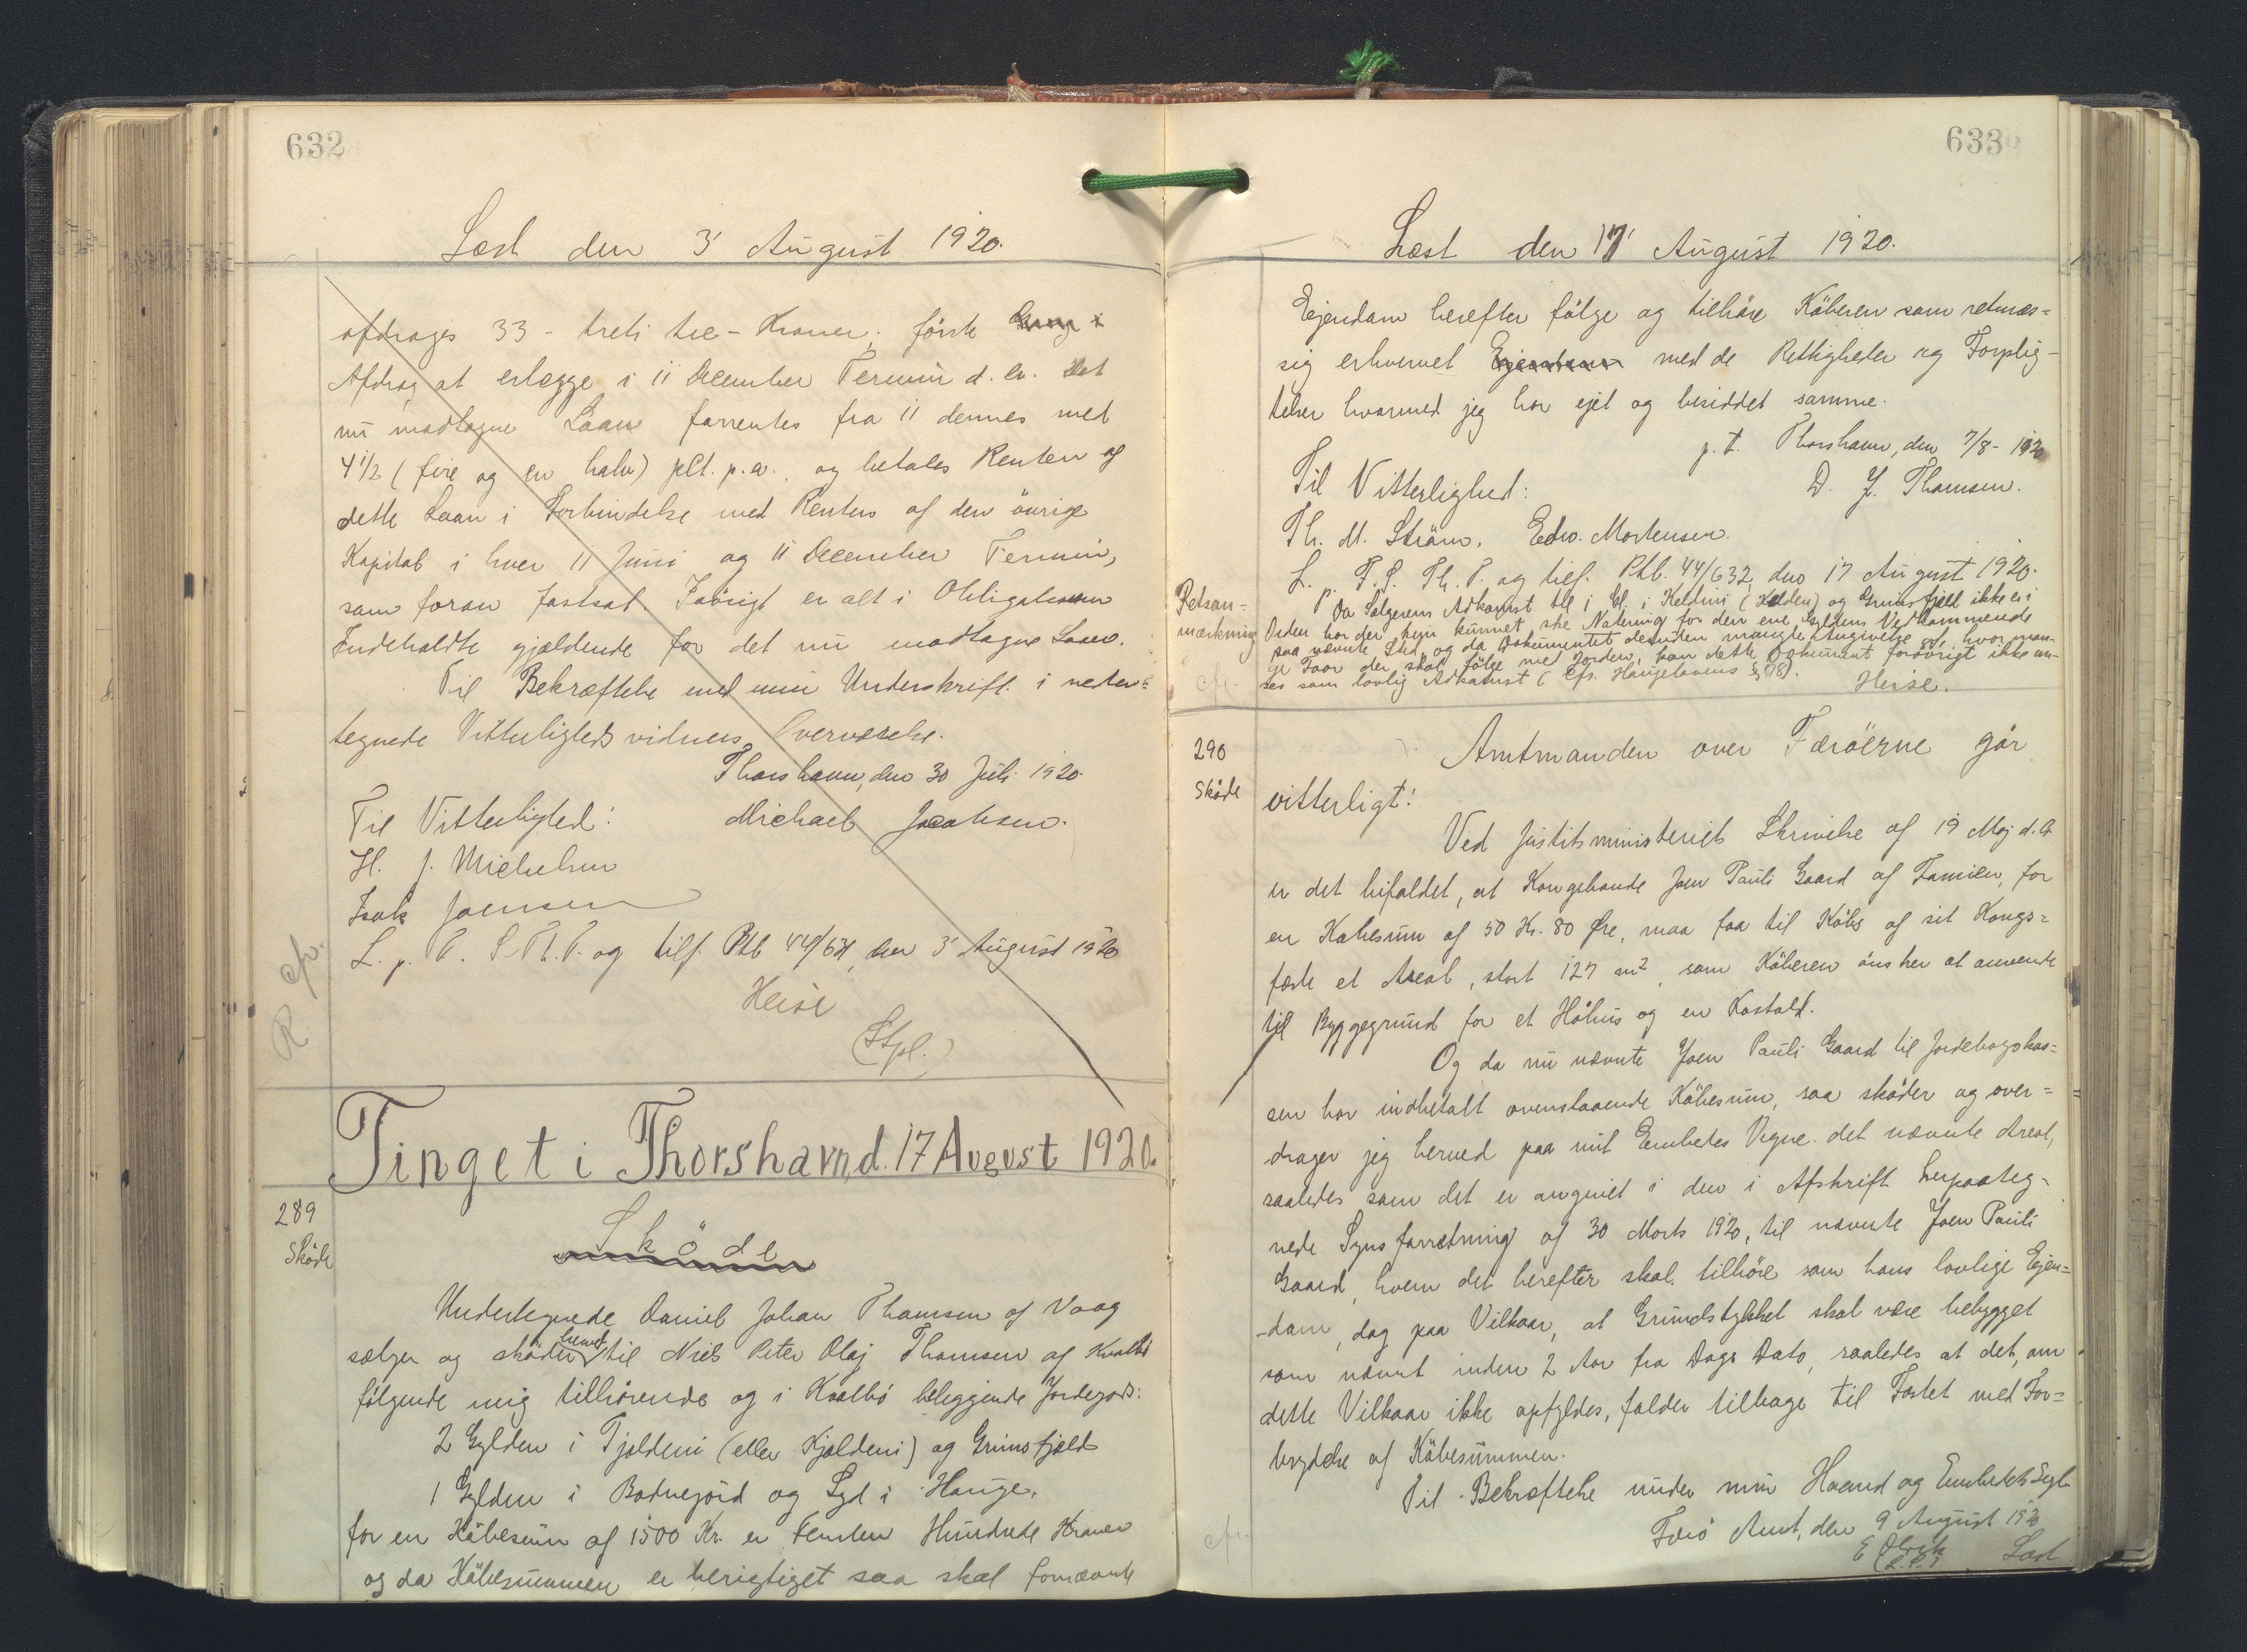 632
Læst den 3' August 1920.
afdrages 33 - treti tre - Kroner, første Gang i
Afdrag at erlægge i 11 December Termin d. A. Det
nu modtagne Laan forrentes fra 11 dennes med
4 1/2 (fire og en halv) pCt. p.a. og betales Renten af
dette Laan i Forbindelse med Renten af den övrige
Kapital i hver 11 Juni og 11 December Termin,
som foran fastsat. Iøvrigt er alt i Obligationen
Indeholdte gjældende for det nu modtagne Laan.
Til Bekræftelse med min Underskrift i neden=
tegnede Vitterligheds vidners Overværelse.
Thorshavn, den 30 Juli 1920.
Til Vitterlighed: Michael Jacobsen.
H. J. Michelsen
Isak Joensen
L. p. F. S. Th. T. og tilf. Ptb 44/631, den 3' August 1920
Heise
(Stpl.)
R. cfr.
Tinget i Thorshavn, d. 17 August 1920.
289
Sköde
Sköde
Undertegnede Daniel Johan Thomsen af Vaag
sælger og sköder herved til Niels Peter Olaj Thomsen af Kvalbö
fölgende mig tilhörende og i Kvalbö beleggende Jordegods:
2 Gylden i Tjoldeni (eller Kjoldeni) og Grimsfjeld
1 Gylden i Bodnegörd og Syd i Hauge,
for en Köbesum af 1500 Kr. er Femten Hundrede Kroner
og da Köbesummen er berigtiget saa skal fornævnte
633
Læst den 17' August 1920.
Ejendom herefter fölge og tilhöre Köberen som retmæs=
sig erhvervet Ejendom med de Rettigheder og Forplig-
telser hvormed jeg har ejet og besiddet samme.
p. t. Thorshavn, den 7/8 - 1920
Til Vitterlighed: D. J. Thomsen.
Th. M. Ström. Edw. Mortensen.
L. p. F. S. Th. T. og tilf. Ptb. 44/632, den 17 August 1920.
Retsan=
mærkning
Da Sælgerens Adkomst til 1 Gl. i Keldini (Kelden) og Grimsfjeld ikke er i
Orden har der kun kunnet ske Notering for den ene Gyldens Vedkommende
paa nævnte Sted, og da Dokumentet desuden mangler Angivelse af, hvor man-
ge Faar der skal fölge med Jorden, kan dette Dokument forövrigt ikke an-
ses som lovlig Adkomst (cfr. Haugelovens § 18).
Heise.
cfr.
290
Sköde
Amtmanden over Færöerne gör
vitterligt!
Ved Justitsministeriets Skrivelse af 19 Maj d. A.
er det bifaldet, at Kongsbonde Joen Pauli Gaard af Famien, for
en Købesum af 50 Kr. 80 Øre, maa faa til Köbs af sit Kongs=
fæste et Areal, stort 127 m², som Köberen önsker at anvende
til Byggegrund for et Höhus og en Kostald.
Og da nu nævnte Joen Pauli Gaard til Jordebogskas=
sen har indbetalt ovenstaaende Köbesum, saa sköder og over=
drager jeg herved paa mit Embedes Vegne det nævnte Areal,
saaledes som det er angivet i den i Afskrift herpaateg-
nede Synsforretning af 30 Marts 1920, til nævnte Joen Pauli
Gaard, hvem det herefter skal tilhöre som hans lovlige Ejen=
-dom, dog paa Vilkaar, at Grundstykket skal være bebygget
som nævnt inden 2 Aar fra Dags Dato, saaledes at det, om
dette Vilkaar ikke opfyldes, falder tilbage til Fæstet med For=
brydelse af Köbesummen.
Til Bekræftelse under min Haand og Embedets Segl
Færö Amt, den 9 August 1920
E Olrik
(L.S.) Læst
cfr.